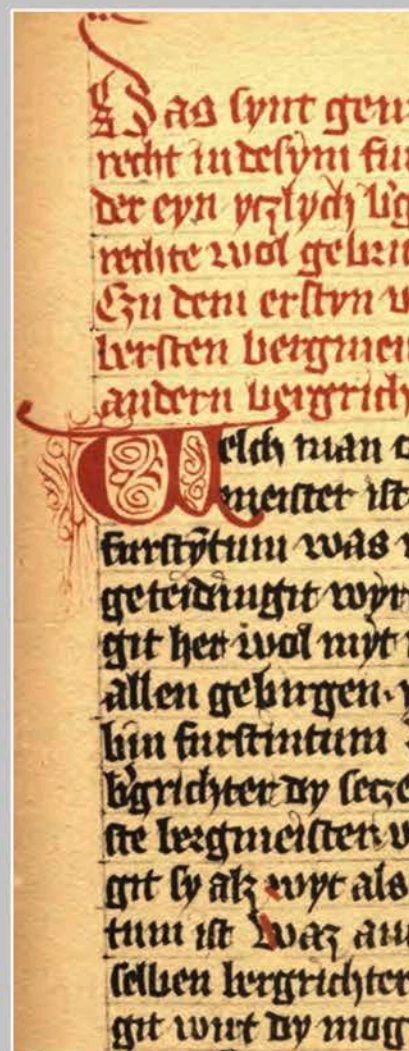 Das synt gem
recht in desym fur
der eyn yczlych b'g
rechte wol gebru
Czu dem erstyn v
bersten bergmeis
andern bergrich
Welch man o
meister ist
furstȳtum was
geteidingit wyr
git her wol myt
allen gebirgen
bin furstintum
b'grichter dy secze
ste bergmeister v
git sy alz wyt als
tum ist Waz an
selben bergrichter
git wirt dy mog